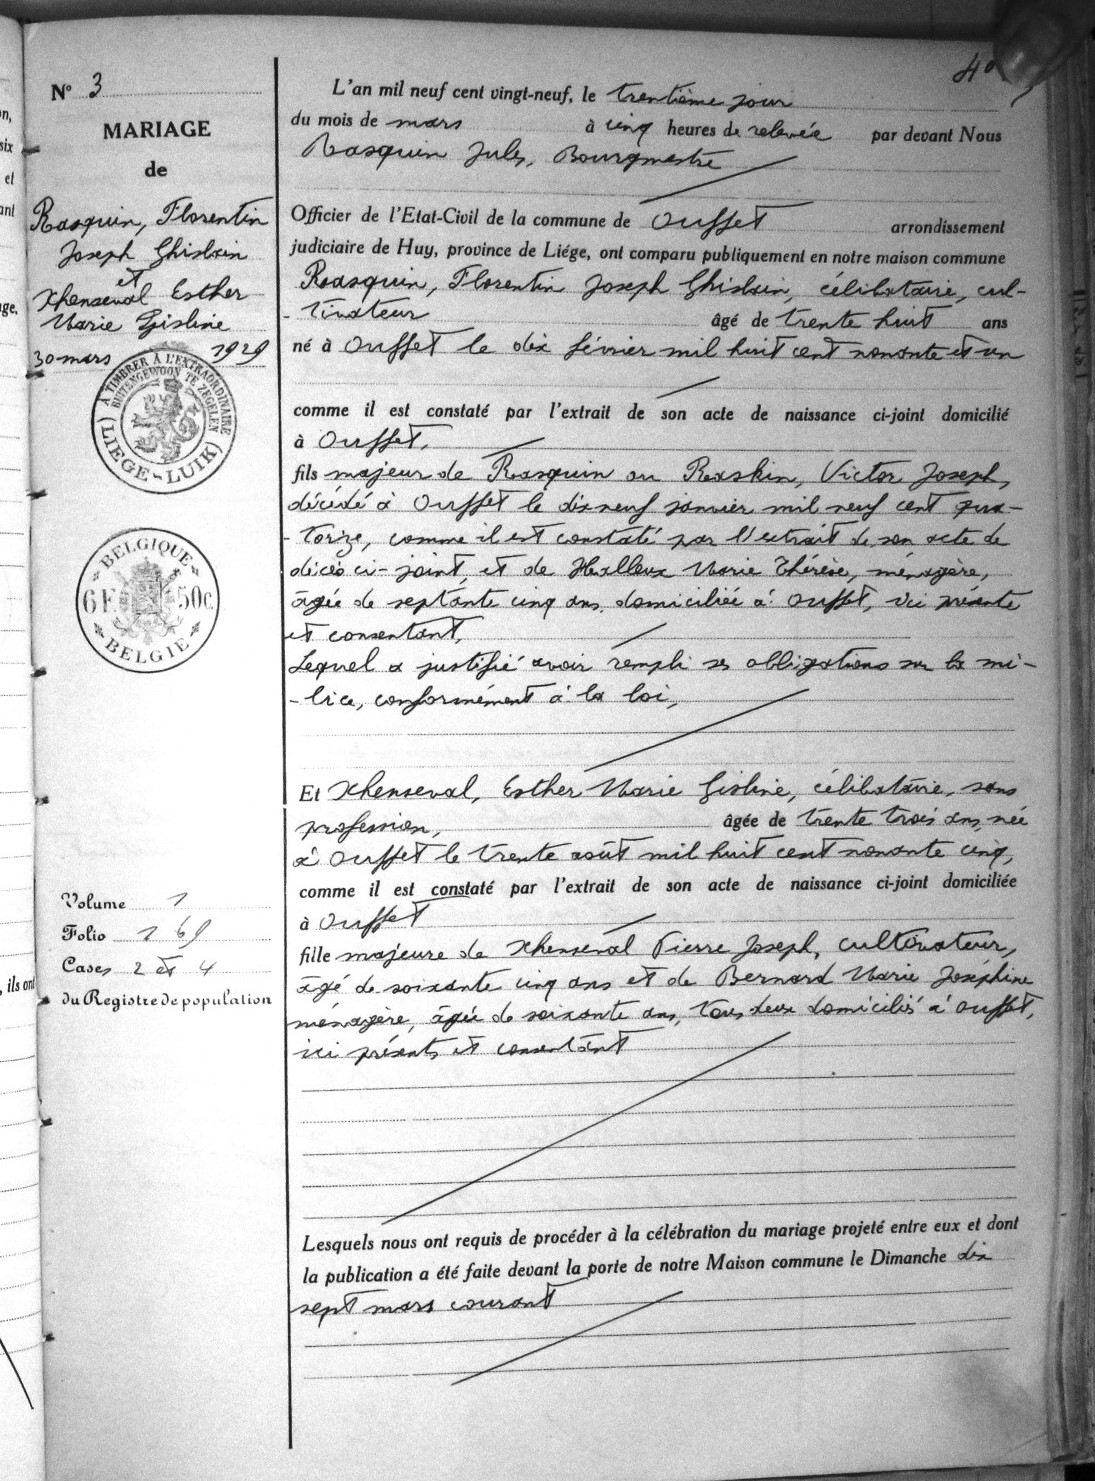 40
N° 3
MARIAGE
de
Rasquin, Florentin
Joseph Ghislain
et
Xhenseval Esther
Marie Gisline
30 mars 1929
A TIMBRER A L'EXTRAORDINAIRE
BUITENGEWOON TE ZEGELEN
(LIEGE-LUIK)
BELGIQUE
6 F. 50 c.
BELGIE
Volume 1
Folio 169
Cases 2 et 4
du Registre de population
L'an mil neuf cent vingt-neuf, le trentième jour
du mois de mars à cinq heures de relevée par devant Nous
Rasquin Jules, Bourgmestre
Officier de l'Etat-Civil de la commune de Ouffet arrondissement
judiciaire de Huy, province de Liége, ont comparu publiquement en notre maison commune
Rasquin, Florentin Joseph Ghislain, célibataire, cul-
-tivateur âgé de trente huit ans
né à Ouffet le dix février mil huit cent nonante et un
comme il est constaté par l'extrait de son acte de naissance ci-joint domicilié
à Ouffet,
fils majeur de Rasquin ou Raskin, Victor Joseph,
décédé à Ouffet le dix neuf janvier mil neuf cent qua-
-torze, comme il est constaté par l'extrait de son acte de
décès ci-joint, et de Halleux Marie Thérèse, ménagère,
âgée de septante cinq ans domiciliée à Ouffet, ici présente
et consentant,
Lequel a justifié avoir rempli ses obligations sur la mi-
-lice, conformément à la loi,
Et Xhenseval, Esther Marie Gisline, célibataire, sans
profession, âgée de trente trois ans, née
à Ouffet le trente août mil huit cent nonante cinq,
comme il est constaté par l'extrait de son acte de naissance ci-joint domiciliée
à Ouffet
fille majeure de Xhenseval Pierre Joseph, cultivateur,
âgé de soixante cinq ans et de Bernard Marie Joséphine
ménagère, âgée de soixante ans, tous deux domiciliés à Ouffet,
ici présents et consentant
Lesquels nous ont requis de procéder à la célébration du mariage projeté entre eux et dont
la publication a été faite devant la porte de notre Maison commune le Dimanche dix
sept mars courant